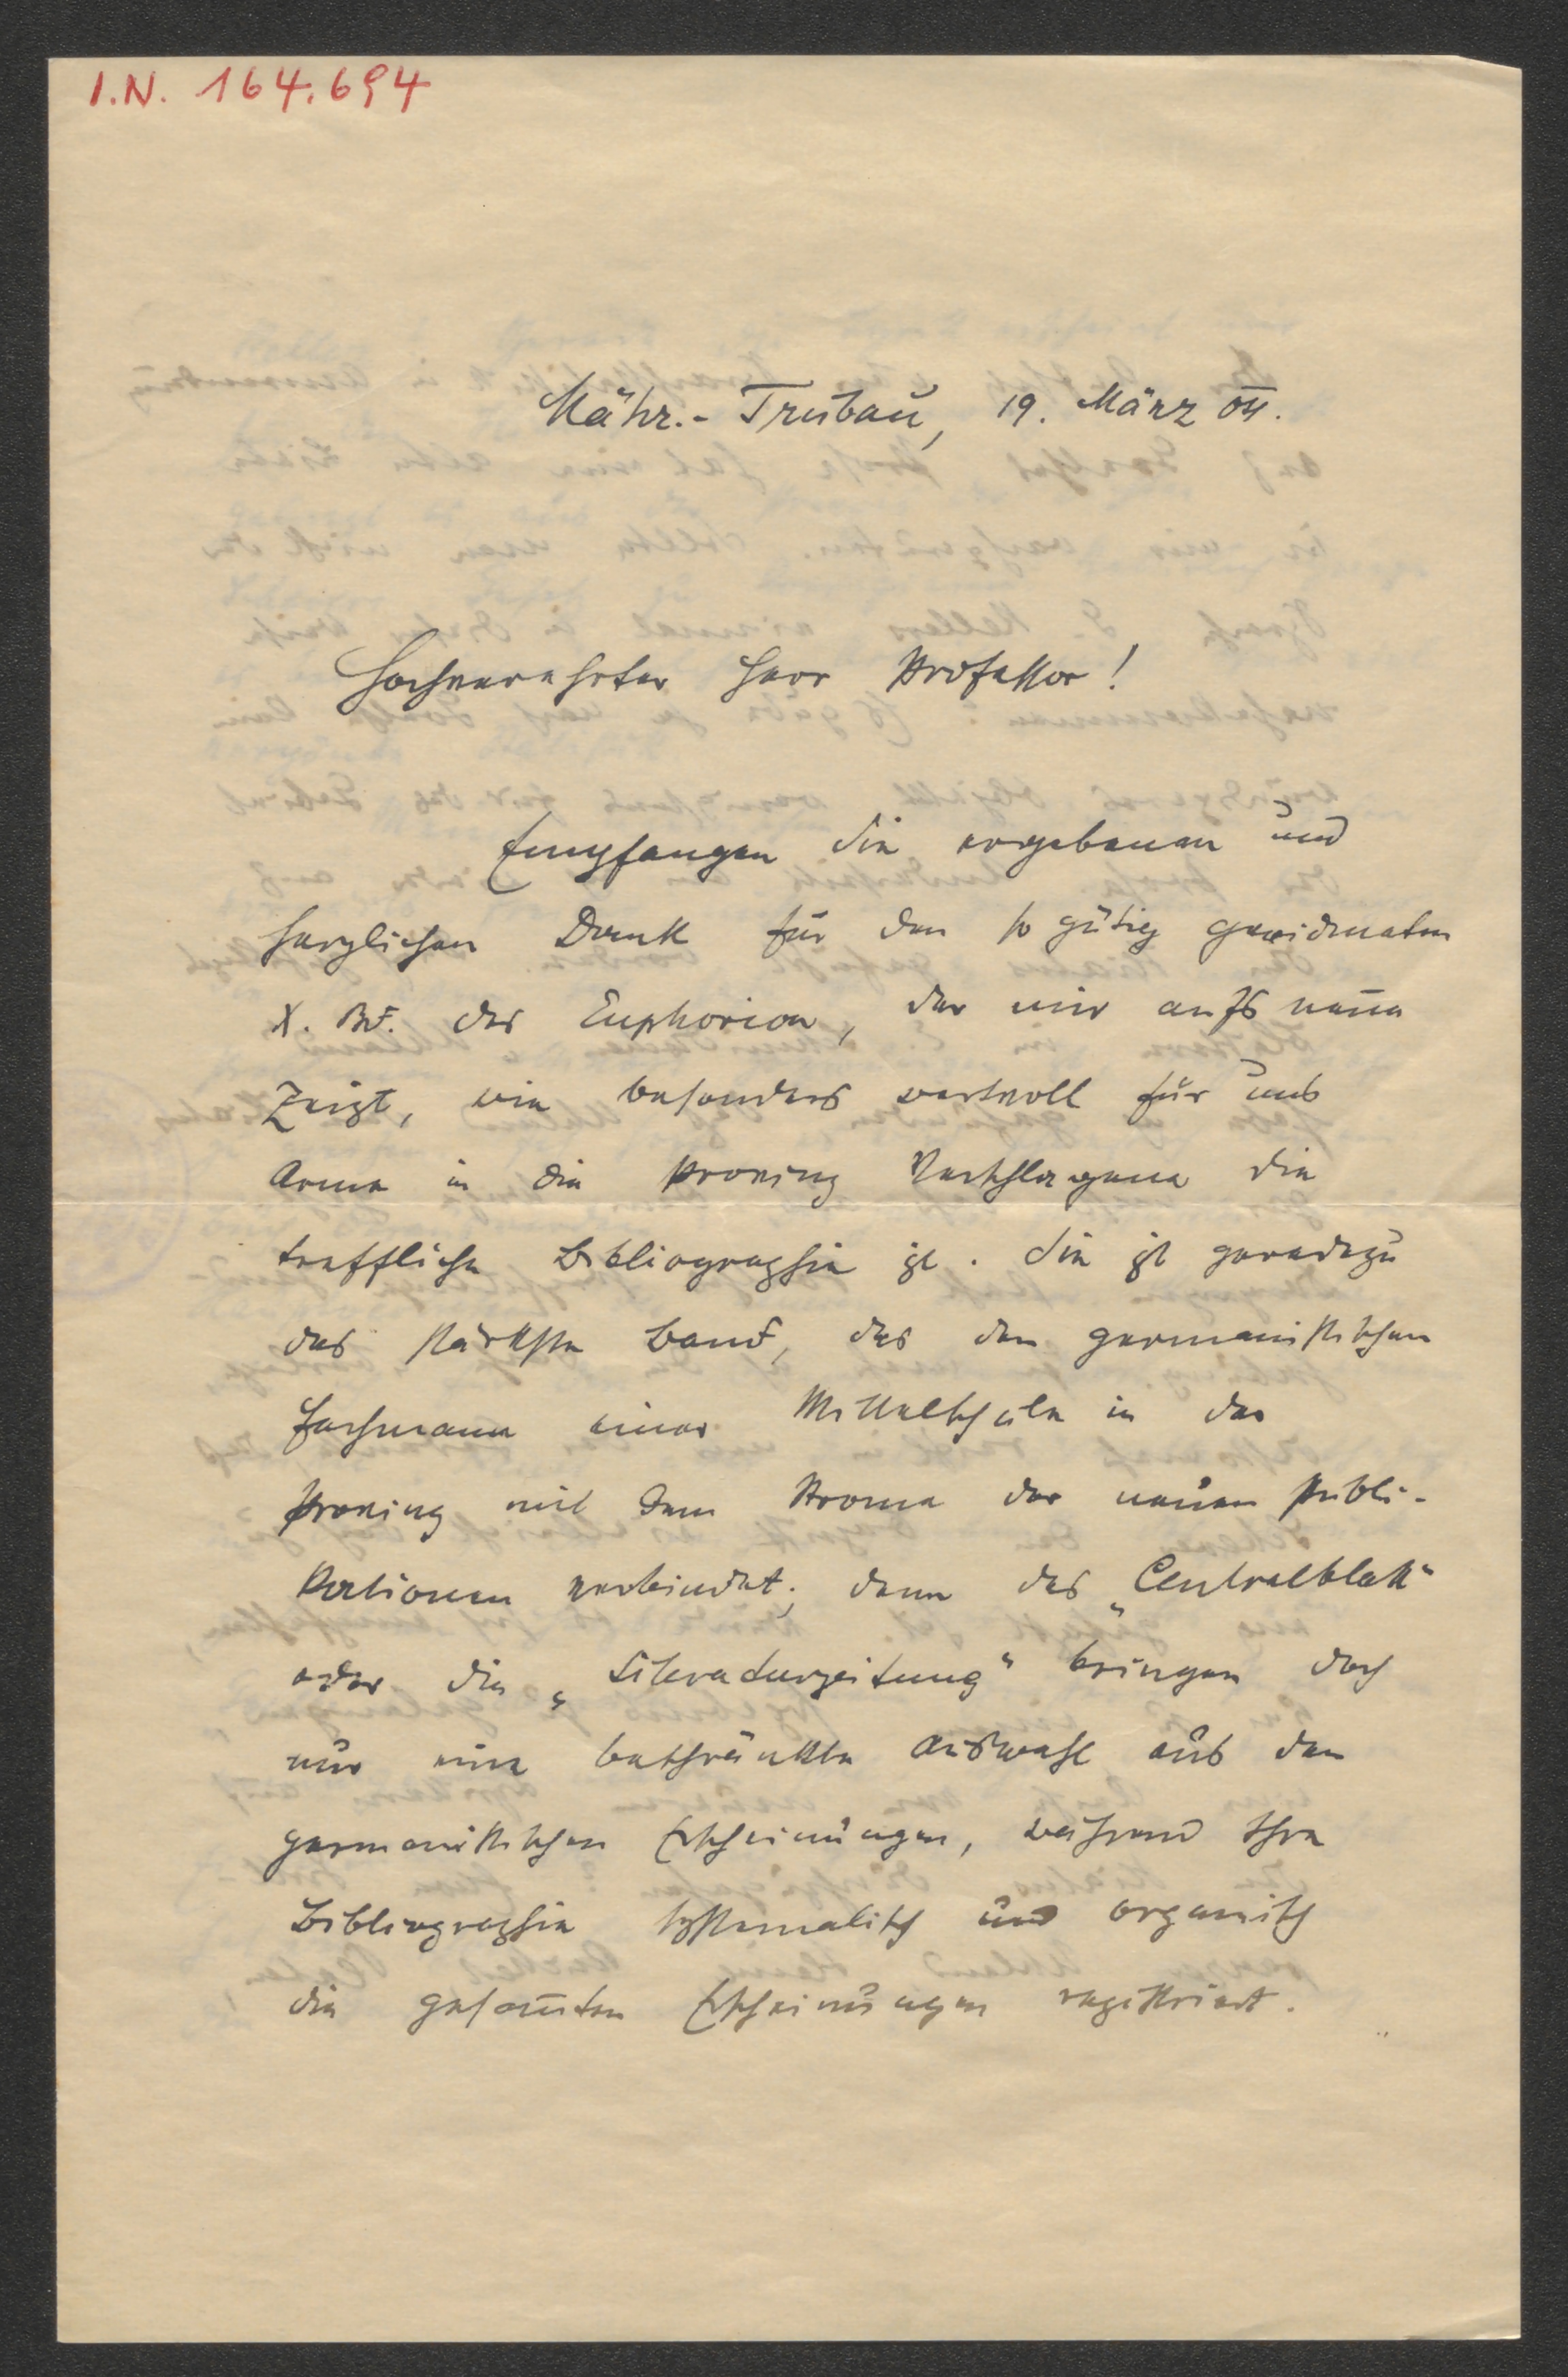 I.N. 164.694
Mähr.-Trübau, 19. März 04.
Hochverehrter Herr Professor!
Empfangen Sie ergebenen und
herzlichen Dank für den so gütig gewidmeten
X. Bd. des Euphorion, der mir aufs neue
zeigt, wie besonders wertvoll für uns
Arme in die Provinz Verschlagene die
treffliche Bibliographie ist. Sie ist geradezu
das stärkste Band, das den germanistischen
Fachmann einer Mittelschule in der
Provinz mit dem Strome der neuen Publi-
kationen verbindet; denn das „Centralblatt“
oder die „Literaturzeitung“ bringen doch
nur eine beschränkte Auswahl aus den
germanistischen Erscheinungen, während Ihre
Bibliographie systematisch und organisch
die gesamten Erscheinungen registriert.